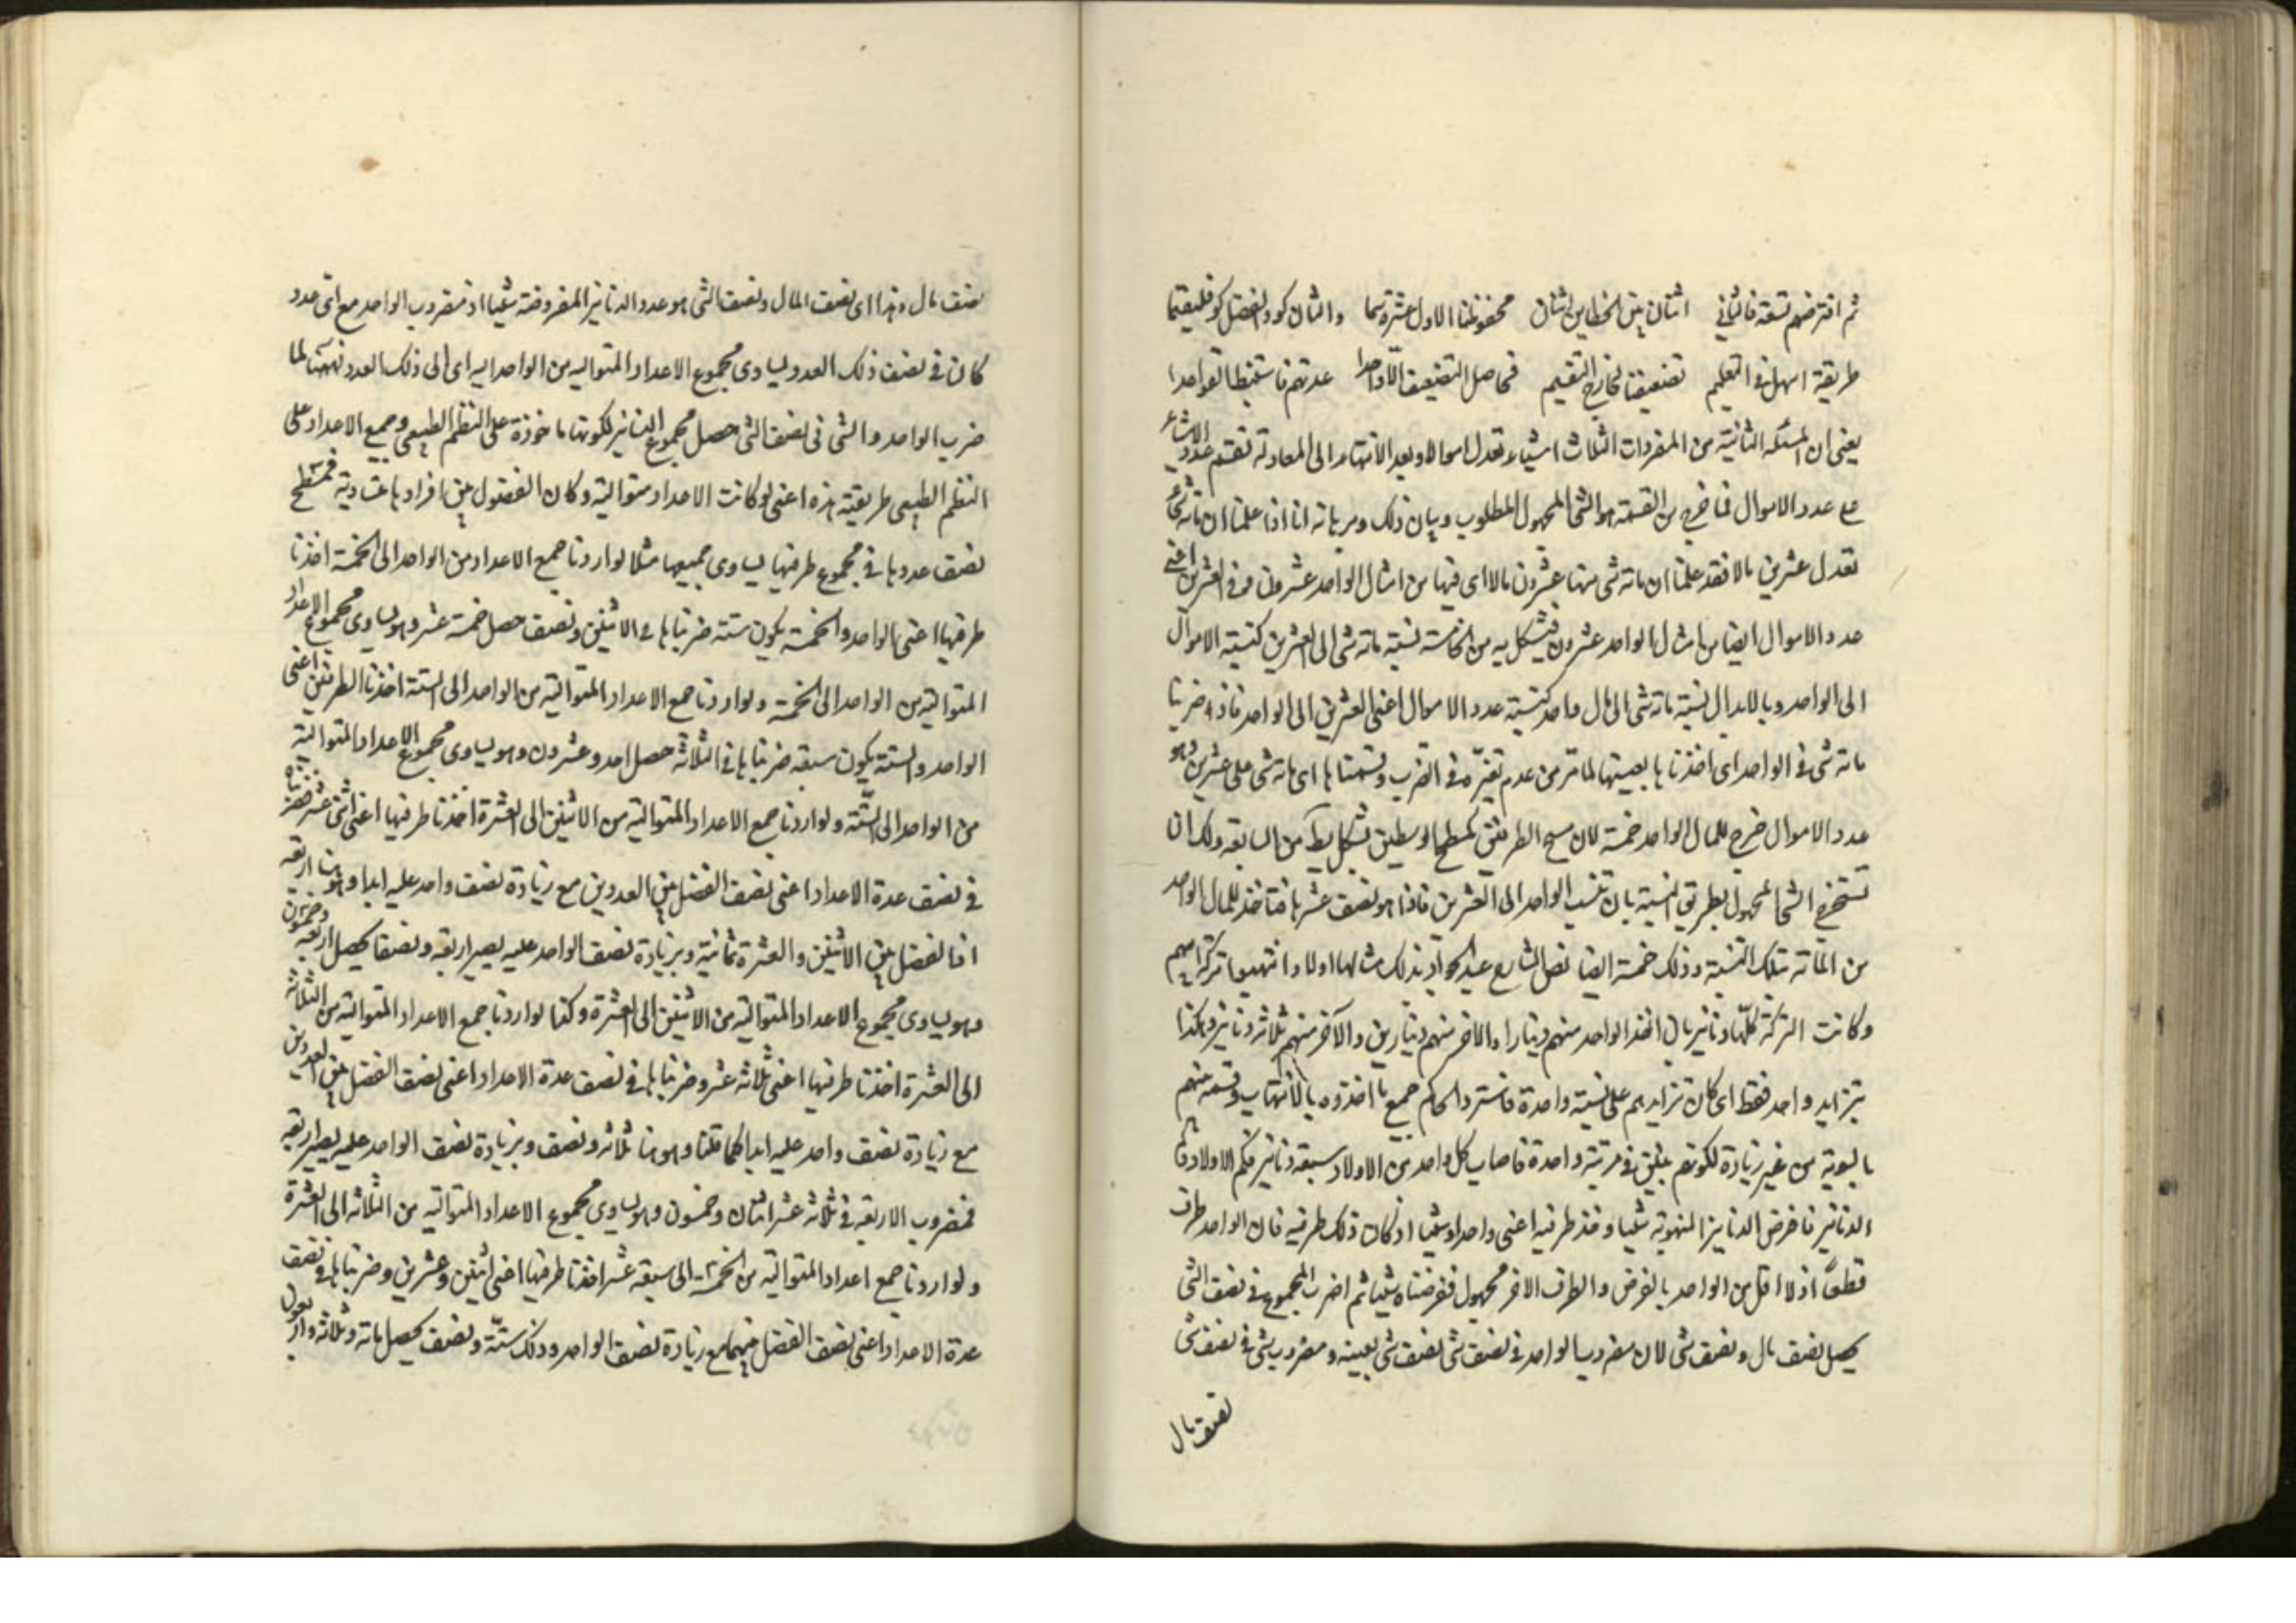 ثم افترضهم تسعة فالثاني اثنان بين الخطاين اثنان محفوظنا الاول عشرة سما والثان كو والفضل كو فليقتما
طريقة اسهل في التعليم تضعيفنا لخارج التقسيم فحاصل التضعيف الا واحدا عدتهم فاستنبطا لقواعدا
يعنى ان المسئلة الثانية من المفردات الثلاث اشياء تعدل اموالا وبعد الانتهاء الى المعادلة تقسم عدد الاشياء
على عدد الاموال فما خرج من القسمة هو الشئ المجهول المطلوب وبيان ذلك وبرهانه انا اذا علمنا ان مائة شئ
تعدل عشرين مالا فقد علمنا ان مائة شئ منها عشرون مالا اى فيها من امثال الواحد عشرون وفي العشرين اعنى
عدد الاموال ايضا من امثال الواحد عشرون فبشكل يه من الخامسة نسبة مائة شئ الى العشرين كنسبة الاموال
الى الواحد وبالابدال نسبة مائة شئ الى مال واحد كنسبة عدد الاموال اعنى العشرين الى الواحد فاذا ضربنا
مائة شئ في الواحد اى اخذناها بعينها لما مر من عدم تغيره في الضرب وقسمناها اى مائة شئ على عشرين وهو
عدد الاموال خرج للمال الواحد خمسة لان مسطح الطرفين كمسطح الوسطين بشكل يط من السابعة ولك ان
تستخرج الشئ المجهول بطريق النسبة بان تنسب الواحد الى العشرين فاذا هو نصف عشرها فتاخذ للمال الواحد
من المائة بتلك النسبة وذلك خمسة ايضا نص الشارع عبد الجواد بذلك مثالها اولاد انتهبوا تركة ابيهم
وكانت التركة كلها دنانير بان اخذ الواحد منهم دينارا والاخر منهم دينارين والآخر منهم ثلاثة دنانير وهكذا
بتزايد واحد فقط اى كان تزايدهم على نسبة واحدة فاسترد الحاكم جميع ما اخذوه بالانتهاب وقسمه بينهم
بالسوية من غير زيادة لكونهم بنين في مرتبة واحدة فاصاب كل واحد من الاولاد سبعة دنانير فكم الاولاد وكم
الدنانير فافرض الدنانير المنهوبة شيئا وخذ طرفيه اعنى واحدا وشيئا اذ كان ذلك طرفيه فان الواحد طرف
قطعا اذ لا اقل من الواحد بالفرض والطرف الاخر مجهول ففرضناه شيئا ثم اضرب المجموع في نصف الشئ
يحصل نصف مال ونصف شئ لان مضروب الواحد في نصف شئ نصف شئ بعينه ومضروب شئ في نصف شئ
نصف مال
نصف مال وهذا اى نصف المال ونصف الشئ هو عدد الدنانير المفروضة شيئا اذ مضروب الواحد مع اى عدد
كان في نصف ذلك العدد يساوى مجموع الاعداد المتوالية من الواحد اليه اى الى ذلك العدد فههنا لما
ضرب الواحد والشئ في نصف الشئ حصل مجموع الدنانير لكونها ماخوذة على النظم الطبيعى وجمع الاعداد على
النظم الطبيعى طريقته هذه اعنى لو كانت الاعداد متوالية وكان الفضول بين افرادها متساوية فمسطح
نصف عددها في مجموع طرفيها يساوى جميعها مثلا لو اردنا جمع الاعداد من الواحد الى الخمسة اخذنا
طرفيها اعنى الواحد والخمسة يكون ستة ضربناها في الاثنين ونصف حصل خمسة عشر وهو يساوى مجموع الاعداد
المتوالية من الواحد الى الخمسة ولو اردنا جمع الاعداد المتوالية من الواحد الى الستة اخذنا الطرفين اعنى
الواحد والستة يكون سبعة ضربناها في الثلاثة حصل احد وعشرون وهو يساوى مجموع الاعداد المتوالية
من الواحد الى الستة ولو اردنا جمع الاعداد المتوالية من الاثنين الى العشرة اخذنا طرفيها اعنى اثنى عشر ضربناه
في نصف عدة الاعداد اعنى نصف الفضل بين العددين مع زيادة نصف واحد عليه ابدا وهو هنا اربعة
اذ الفضل بين الاثنين والعشرة ثمانية وبزيادة نصف الواحد عليه يصير اربعة ونصفا يحصل اربعة وخمسون
وهو يساوى مجموع الاعداد المتوالية من الاثنين الى العشرة وكذا لو اردنا جمع الاعداد المتوالية من الثلاثة
الى العشرة اخذنا طرفيها اعنى ثلاثة عشر وضربناها في نصف عدة الاعداد اعنى نصف الفضل بين العددين
مع زيادة نصف واحد عليه ابدا كما قلنا وهو هنا ثلاثة ونصف وبزيادة نصف الواحد عليه يصير اربعة
فمضروب الاربعة في ثلاثة عشر اثنان وخمسون وهو يساوى مجموع الاعداد المتوالية من الثلاثة الى العشرة
ولو اردنا جمع اعداد المتوالية من الخمسة الى سبعة عشر اخذنا طرفيها اعنى اثنين وعشرين وضربناها في نصف
عدة الاعداد اعنى نصف الفضل بينهما مع زيادة نصف الواحد وذلك ستة ونصف يحصل مائة وثلاثة واربعون